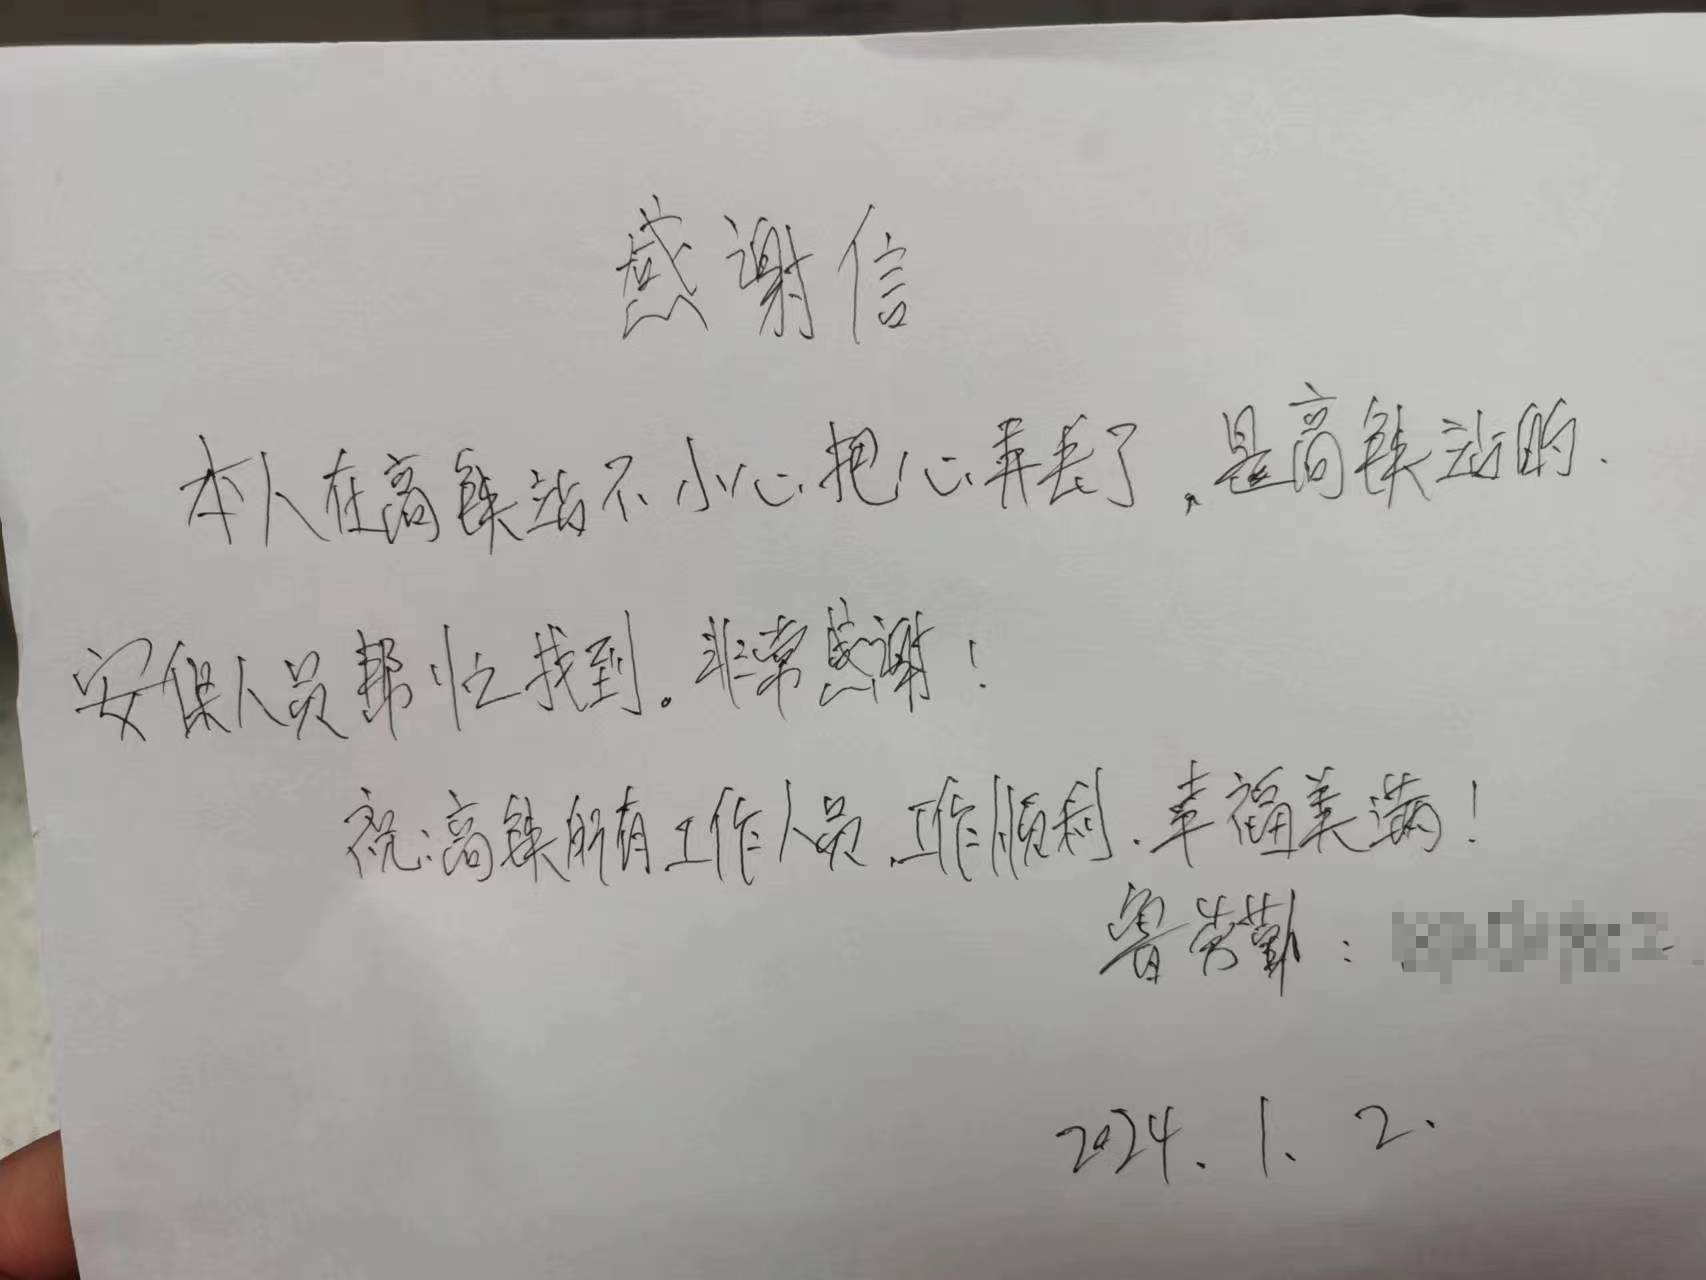 感谢信
本人在高铁站不小心把心弄丢了,是高铁站的.
安保人员帮忙找到。非常感谢!
祝:高铁所有工作人员,工作顺利.幸福美满!
鲁劳勤:
2024.1.2.